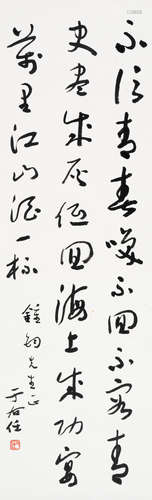 不信青春喚不回不容青
史盡成灰低回海上成功宴
萬里江山酒一杯
鏡鈞先生正
于右任